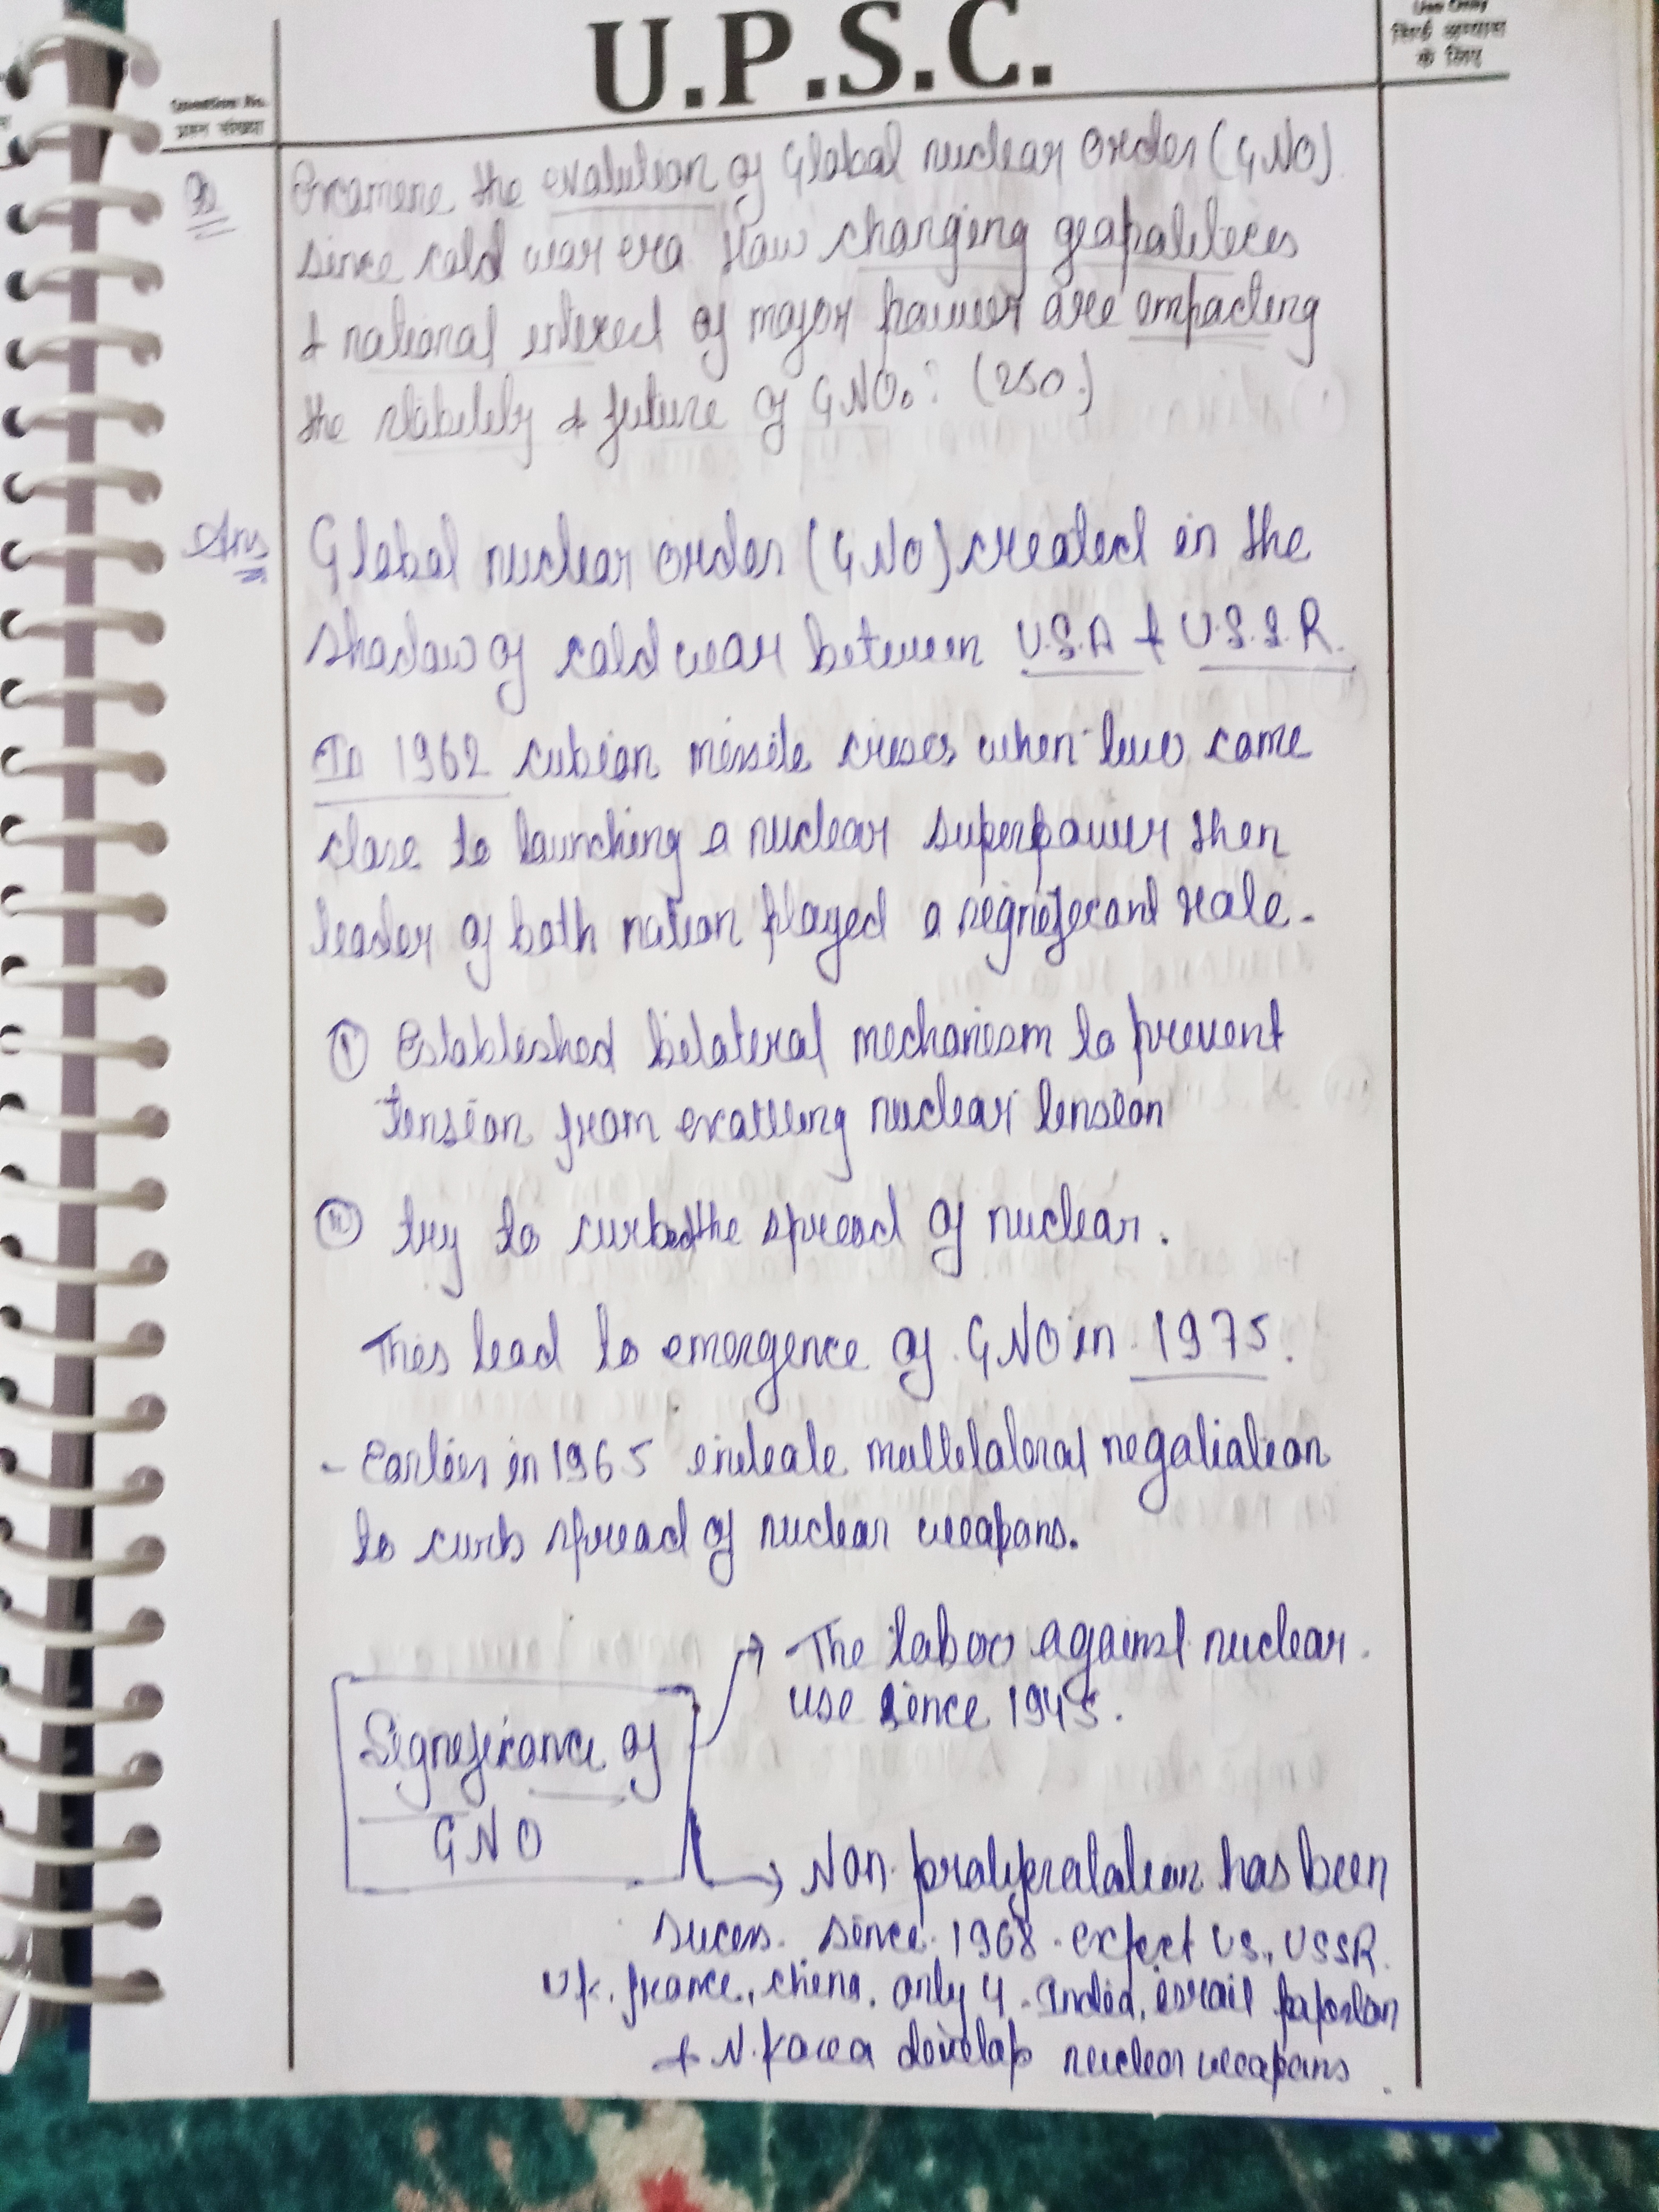 U.P.S.C.
Question No.
प्रश्न संख्या
Use Only
सिर्फ अभ्यास
के लिए
Q Examine the evalution of Global nuclear order (GNO)
since cold war era. How changing geapolitices
& national interest of major pawer are impacting
the stability & future of GNO.? (250.)
Ans Global nuclear order (GNO) created in the
shadow of cold war between U.S.A & U.S.S.R.
In 1962 cubian missile crises when two come
close to launching a nuclear superpawer then
leader of both nation played a significant role.
① Established bilateral mechanism to prevent
tension from nuclear tension
② try to curbed the spread of nuclear.
This lead to emergence of GNO in 1975.
- Earlier in 1965 multilateral negatiation
to curb spread of nuclear weapons.
Significance of
GNO
→ The taboo against nuclear.
use since 1945.
→ Non. has been
sucess. since. 1968. US, USSR.
UK, france, china, only 4. India,
& N. Korea develop nuclear weapons.